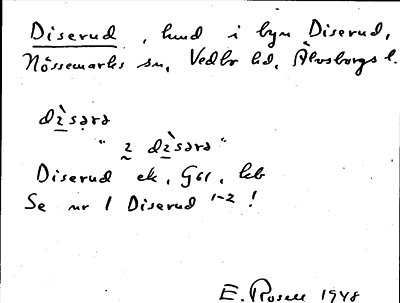 Diserud, hmd i byn Diserud,
Nössemarks sn, Vedbo hd, Älvsborgs l.
dı̀sərə
" ı dı̀sərə "
Diserud ek, G61, kb
Se nr 1 Diserud 1-2 !
E. Rosell 1948